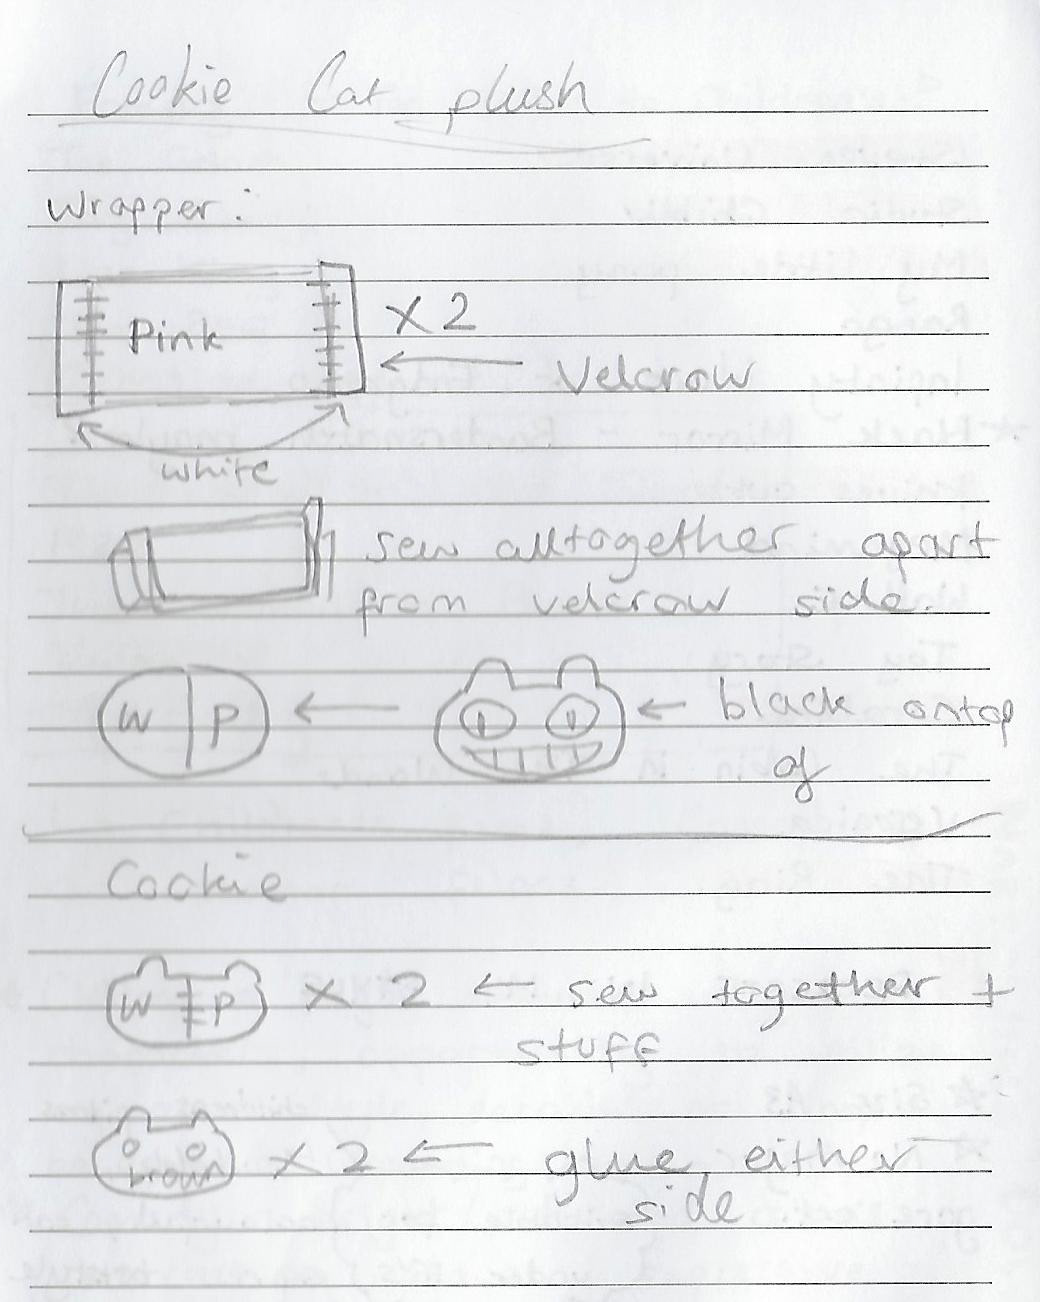 Cookie Cat plush
Wrapper:
Pink x2
Velcrow
white
sew alltogether apart
from velcrow side.
W P black ontop
of
Cookie
W P x 2 sew together +
stuff
brown x 2 glue either
side